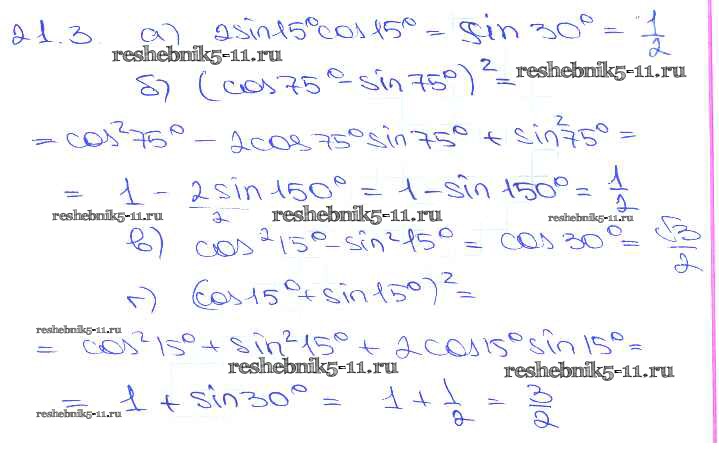 21.3 а) 2sin15°cos15° = sin30° = 1/2
reshebnik5-11.ru reshebnik5-11.ru
б) (cos75° - sin75°)² =
= cos²75° - 2cos75°sin75° + sin²75° =
= 1 - 2sin150°/2 = 1 - sin150° = 1/2
reshebnik5-11.ru reshebnik5-11.ru reshebnik5-11.ru
в) cos²15° - sin²15° = cos30° = √3/2
г) (cos15° + sin15°)² =
reshebnik5-11.ru
= cos²15° + sin²15° + 2cos15°sin15° =
reshebnik5-11.ru reshebnik5-11.ru
= 1 + sin30° = 1 + 1/2 = 3/2
reshebnik5-11.ru